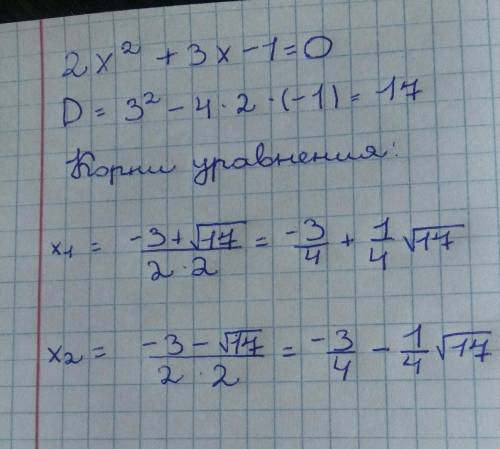 2x² + 3x - 1 = 0
D = 3² - 4 · 2 · (-1) = 17
Корни уравнения:
x₁ = (-3 + √17)/(2 · 2) = -3/4 + 1/4 √17
x₂ = (-3 - √17)/(2 · 2) = -3/4 - 1/4 √17